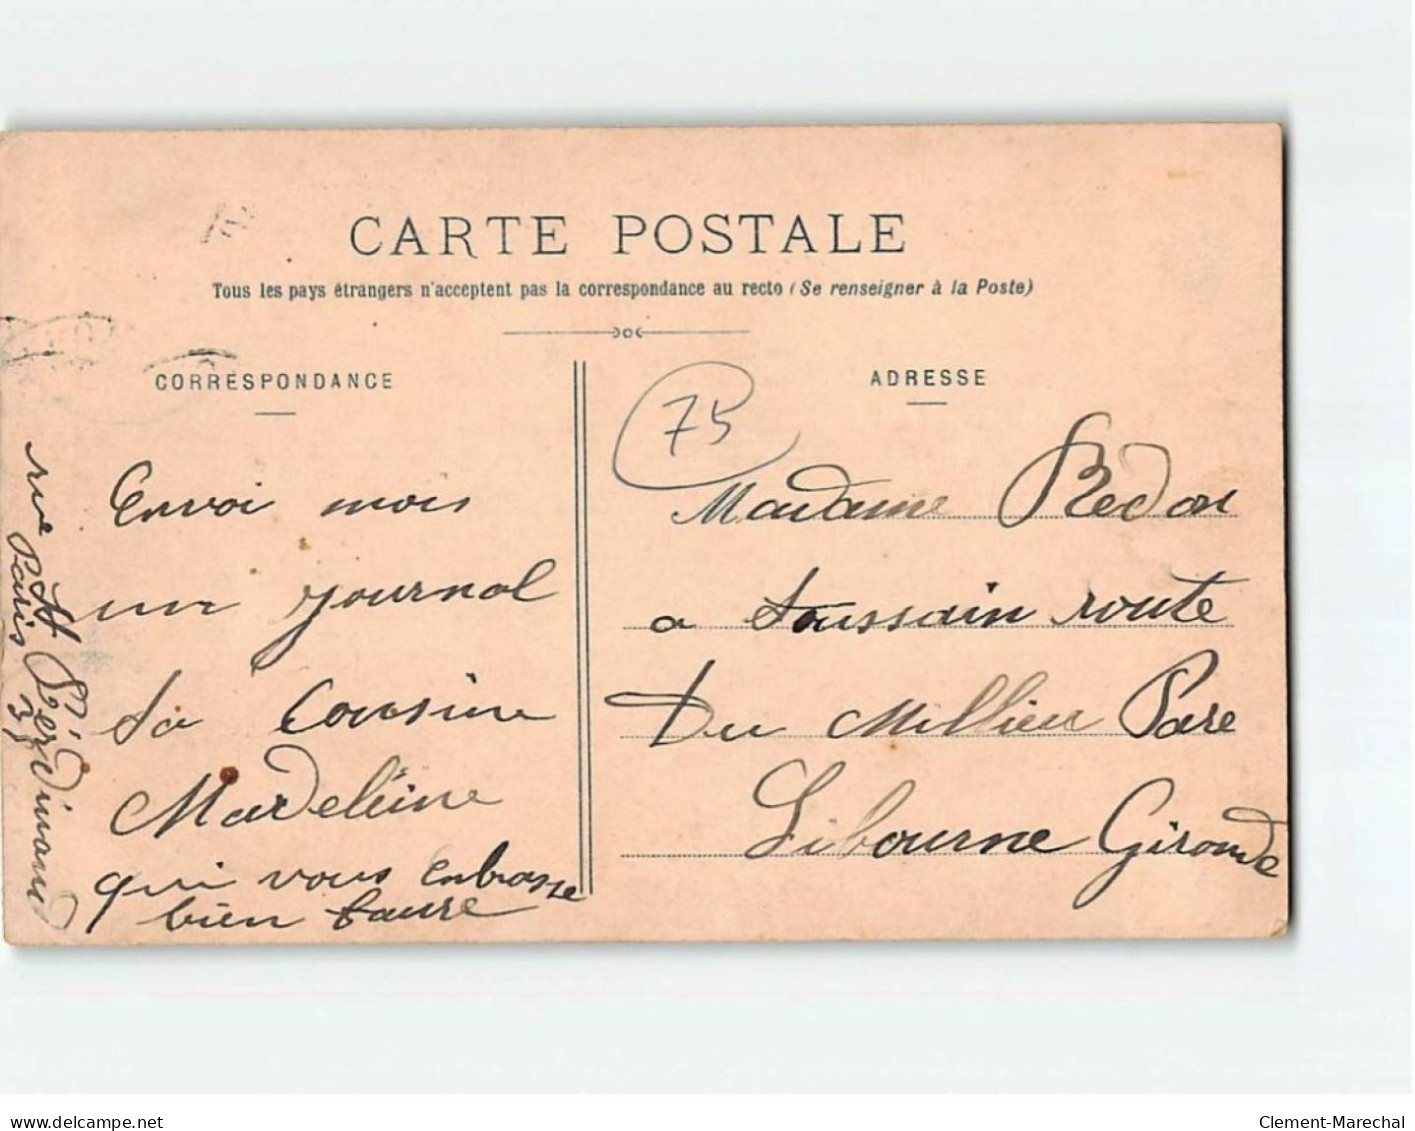 CARTE POSTALE
Tous les pays étrangers n'acceptent pas la correspondance au recto (Se renseigner à la Poste)
CORRESPONDANCE
ADRESSE
75
Envoi mois
un journal
ta Cousine
Madeleine
qui vous enbrasse
bien faure
rue St Ferdinand
Paris 31
Madame Redon
a toussain route
Du Millieu Pare
Libourne Gironde
www.delcampe.net
Clement-Marechal